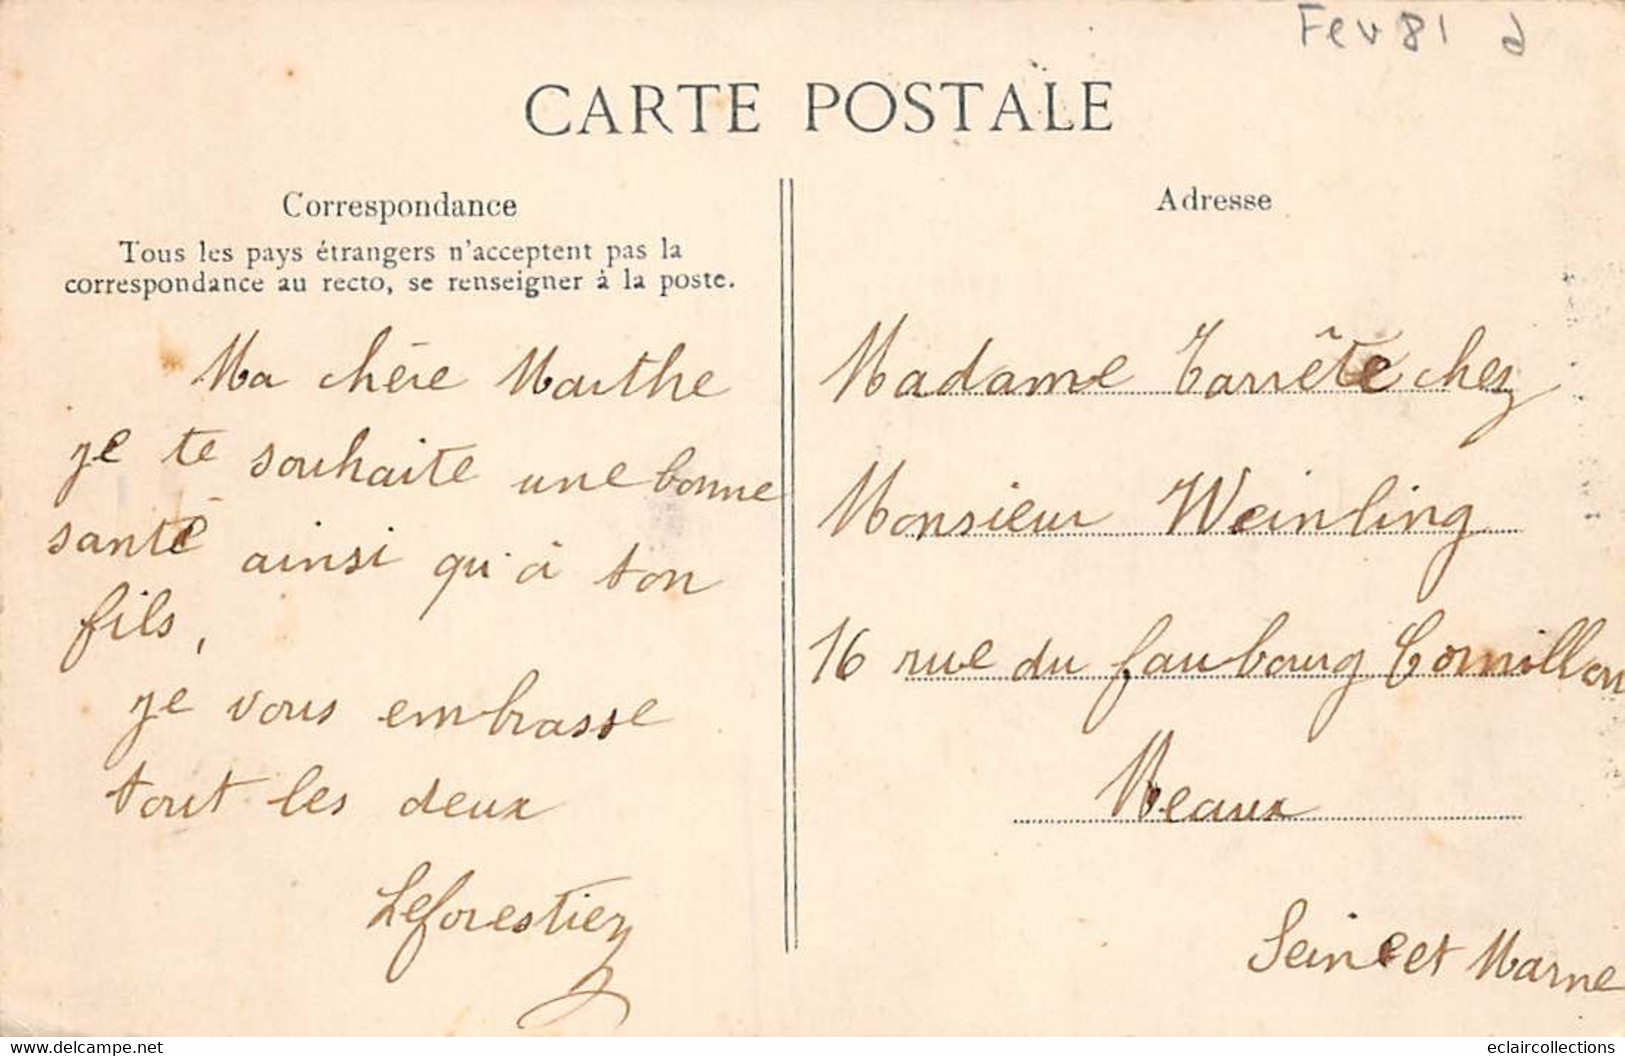 Fev 81
CARTE POSTALE
Correspondance
Tous les pays étrangers n'acceptent pas la
correspondance au recto, se renseigner à la poste.
Ma chère Marthe
je te souhaite une bonne
santé ainsi qu'à ton
fils,
je vous embrasse
tout les deux
Leforestier
Adresse
Madame Tarrête chez
Monsieur Weinling
16 rue du faubourg Cornillon
Meaux
Seine et Marne
www.delcampe.net
eclaircollections